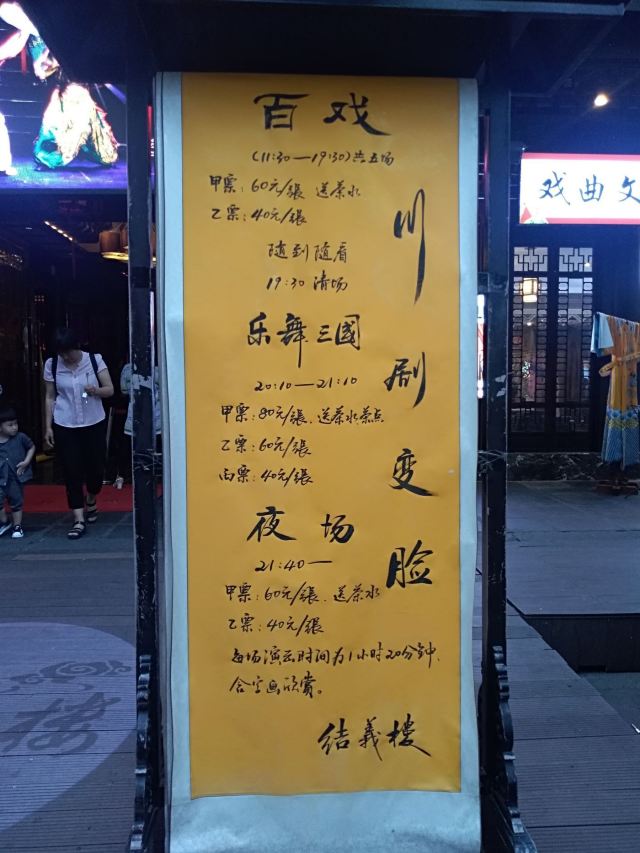 川剧变脸
百戏
(11:30—19:30)共五场
甲票:60元/張 送茶水
乙票:40元/張
随到随看
19:30 清场
乐舞三國
20:10—21:10
甲票:80元/張.送茶水茶点
乙票:60元/張
丙票:40元/張
夜场
21:40—
甲票:60元/張.送茶水
乙票:40元/張
每场演出时间为1小时20分钟.
含字画欣赏。
结義楼
戏曲文
楼